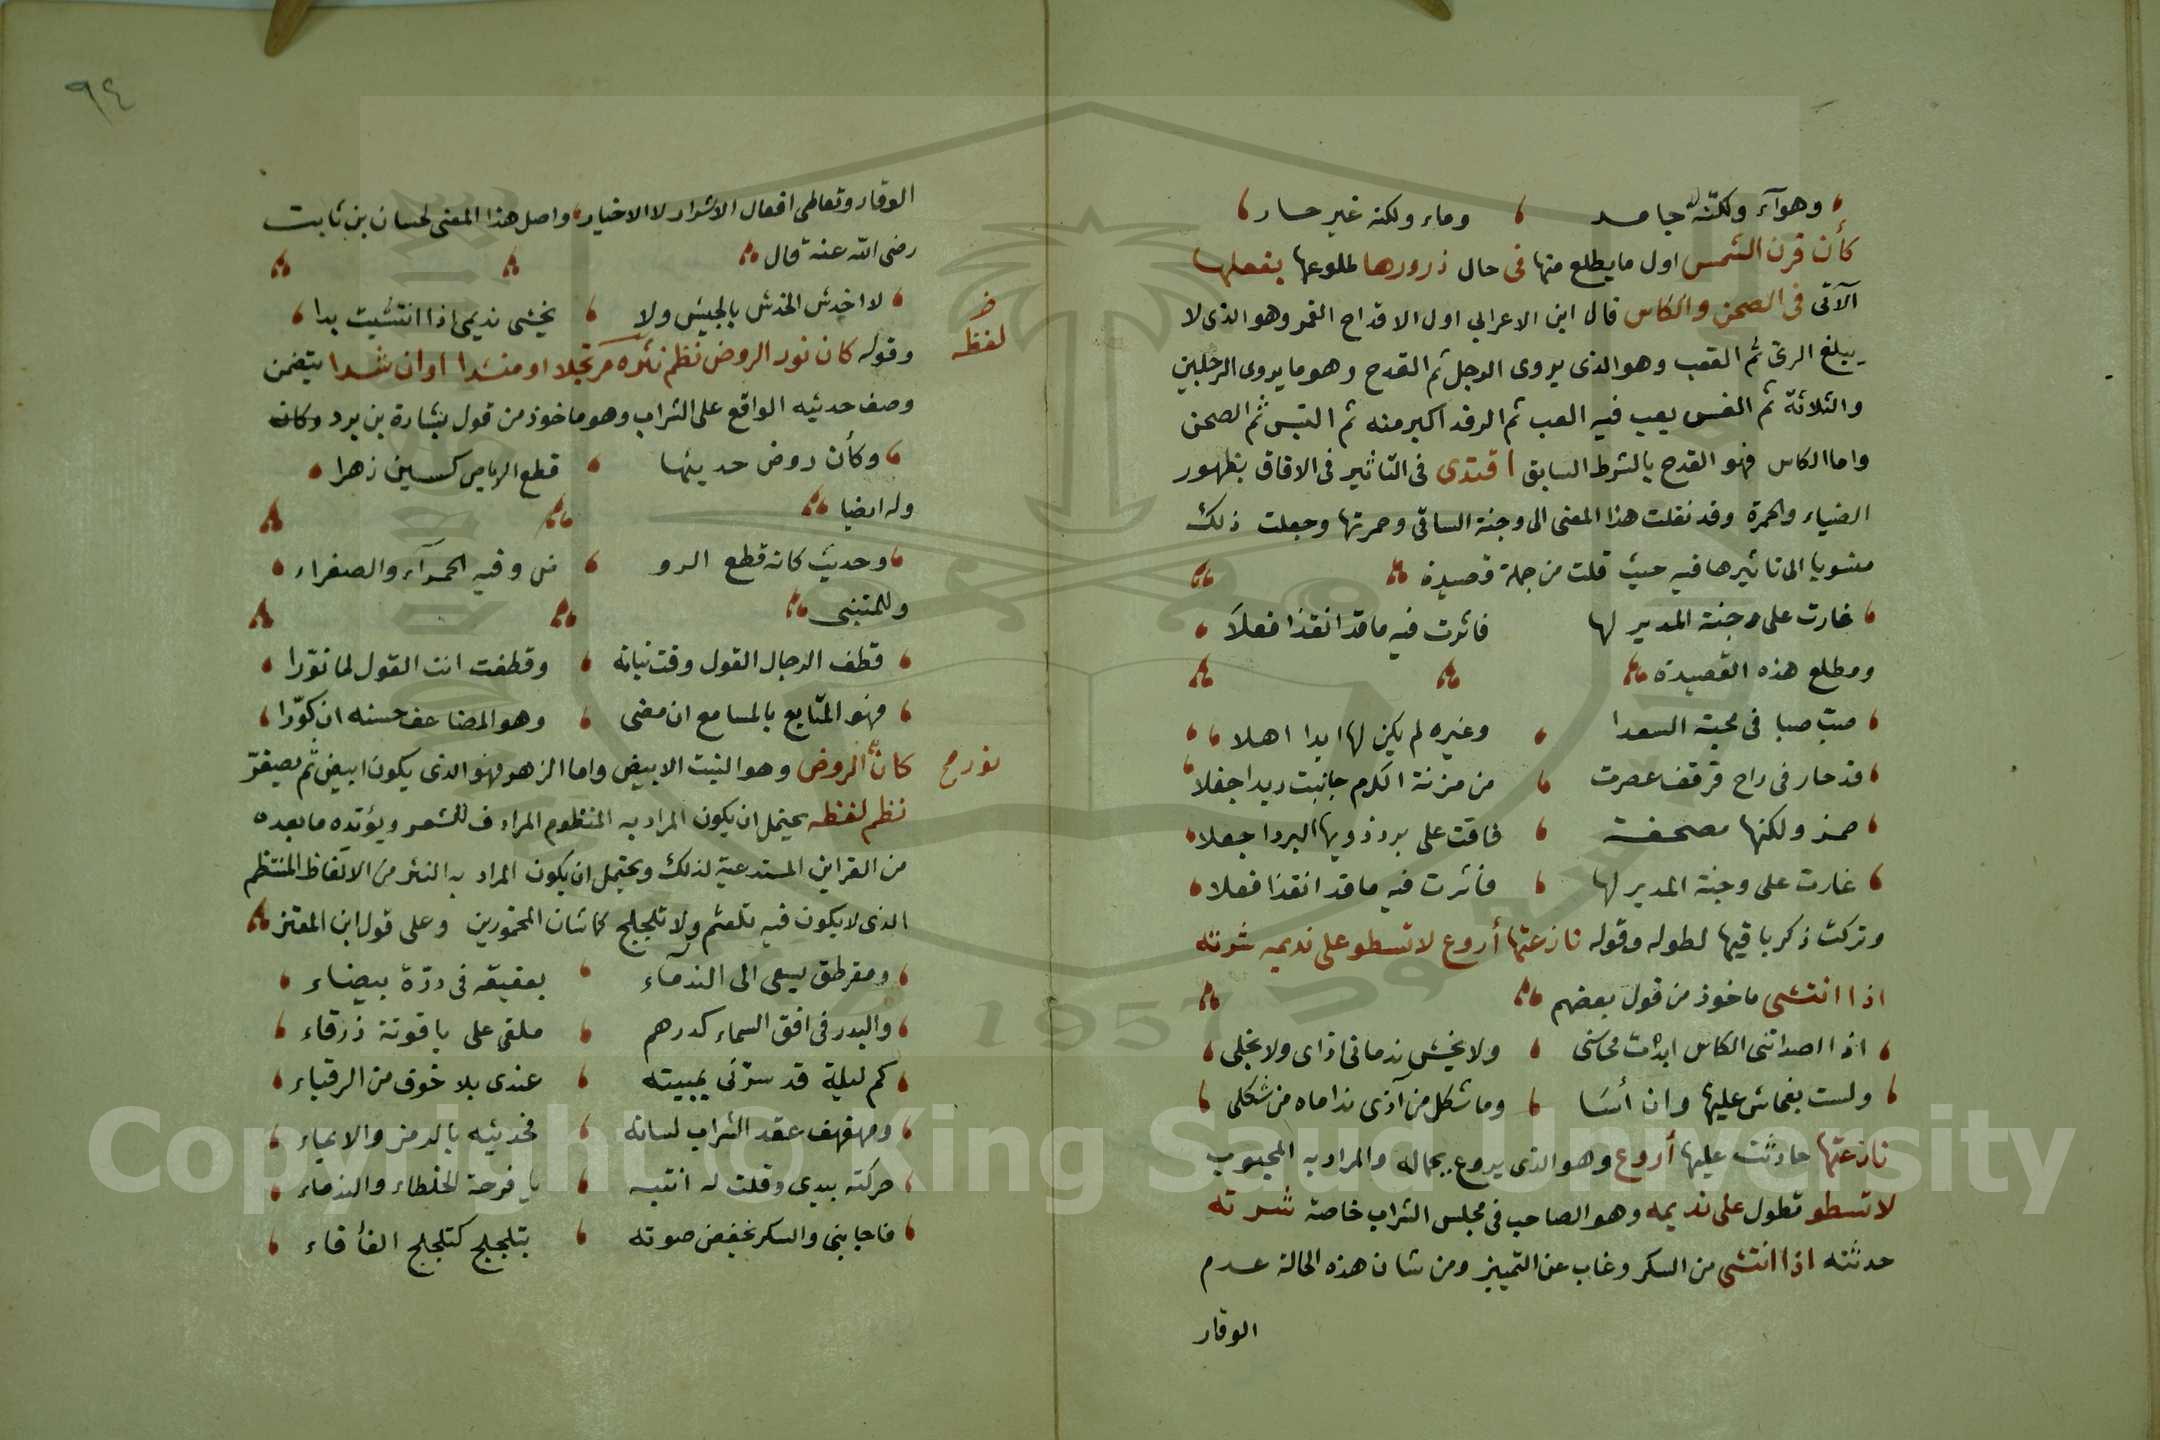 وهوآء ولكنّه جامد وماء ولكنه غير جار
كأن قرن الشمس اول ما يطلع منها فى حال ذرورها طلوعها بفعلها
الآتى فى الصحن والكاس قال ابن الاعرابي اول الاقداح الغمر وهو الذى لا
يبلغ الرى ثم القعب وهو الذى يروى الرجل ثم القدح وهو ما يروى الرجلين
والثلاثة ثم العس يعب فيه العب ثم الرفد اكبر منه ثم التبن ثم الصحن
واما الكاس فهو القدح بالشرط السابق اقتدى فى التاثير فى الافاق بظهور
الضياء والحمرة وقد نقلت هذا المعنى الى وجنة الساقى وحمرتها وجعلت ذلك
منسوبا الى تاثيرها فيه حيث قلت من جملة قصيدة
غارت على وجنة المدير لها فاثرت فيه ما قد انقذا فعلا
ومطلع هذه القصيدة
صبّ صبا فى محبة السعدا وغيره لم يكن لها ابدا اهلا
قد حار فى راح قرقف عصرت من مزنة الكرم جانبت ريدا جفلا
ولكنها مصحفة فاقت على برد ذوبها البردا جعلا
غارت على وجنة المدير لها فأثرت فيه ما قد انقذا فعلا
وتركت ذكر باقيها لطوله وقوله نازعتها أروع لا تسطو على نديمه شرته
اذا انتشى ماخوذ من قول بعضهم
اذا اصداتنى الكاس ابدت محاسنى ولا يخش ندمانى اذاى ولا بخلى
ولست بفحاش عليها وان أسَا وما شكل من آذى نداماه من شكلى
نازعتها حادثت عليها أروع وهو الذى يروع بجماله والمراد به المحبوب
لا تسطو تطول على نديمه وهو الصاحب فى مجلس الشراب خاصة شرته
حدثته اذا انتشى من السكر وغاب عن التمييز ومن شان هذه الحالة عدم
الوقار
٩٤
الوقار وتعاطى افعال الاشرار لا الاخيار واصل هذا المعنى لحسان بن ثابت
رضى الله عنه قال
لا اخدش الخدش بالجليس ولا يخشى نديمى اذا انتشيت يدا
لفظه
وقوله كان نور الروض نظم نثره مرتجلا او منشدا او ان شدا يتضمن
وصف حديثه الواقع على الشراب وهو ماخوذ من قول بشارة بن برد وكان
وكأن روض حديثها قطع الرياض كسين زهرا
وله ايضا
وحديث كانه قطع الرو ض وفيه الحمرآء والصفراء
وللمتنبى
قطف الرجال القول وقت نباته وقطفت انت القول لما نوّرا
فهو المتابع بالمسامع ان مضى وهو المضاعف حسنه ان كوّرا
نور صح
كانّ الروض وهو النبت الابيض واما الزهر فهو الذى يكون ابيض ثم يصفرّ
نظم لفظه يحتمل ان يكون المراد به المنظوم المرادف للشعر ويؤيده ما بعده
من القراين المستدعية لذلك ويحتمل ان يكون المراد به النثر من الالفاظ المنتظم
الذى لا يكون فيه تلعثم ولا تلجلج كما شان المخمورين وعلى قول ابن المعتز
ومقرطق يسعى الى الندماء بعقيقة فى درّة بيضاء
والبدر فى افق السماء كدرهم ملقى على ياقوتة زرقاء
كم ليلة قد سرّنى بمبيته عندى بلا خوف من الرقباء
ومهفهف عقد الشراب لسانه فحديثه بالرمز والايماء
حركته بيدى وقلت له انتبه يا فرحة الخلطاء والندماء
فاجابنى والسكر يخفض صوته بتلجلج كتلجلج الفأفاء
1957
Copyright © King Saud University